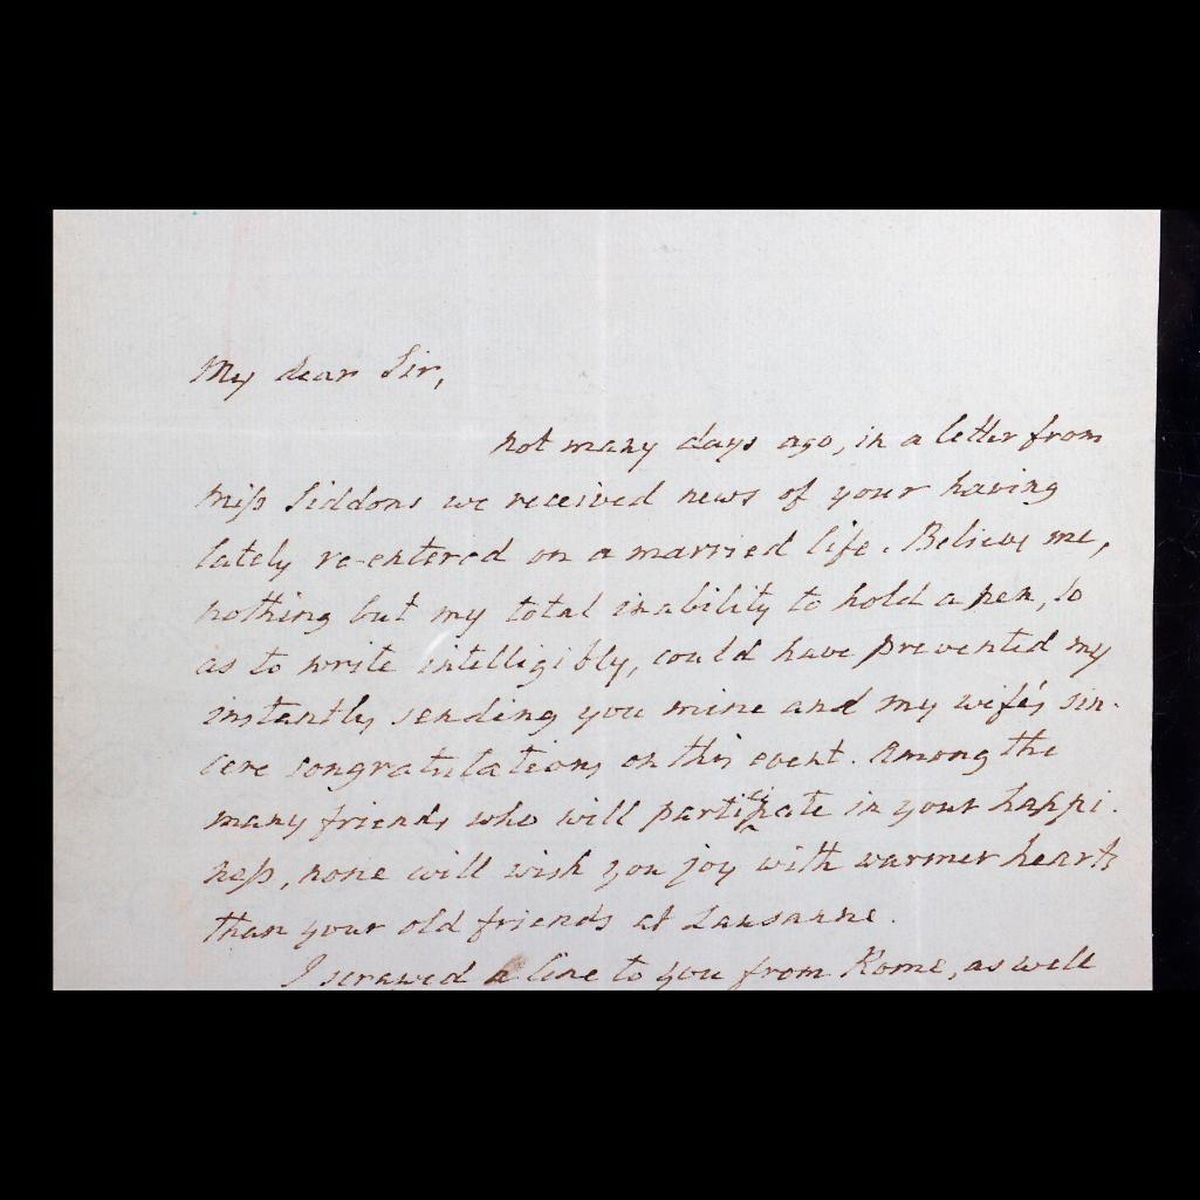 My dear Sir,
not many days ago, in a letter from
Miss Siddons we received news of your having
lately re-entered on a married life. Believe me,
nothing but my total inability to hold a pen, so
as to write intelligibly, could have prevented my
instantly sending you mine and my wife's sin-
cere congratulations on this event. Among the
many friends who will participate in your happi-
ness, none will wish you joy with warmer hearts
than your old friends at Lausanne.
I scrawed a line to you from Rome, as well